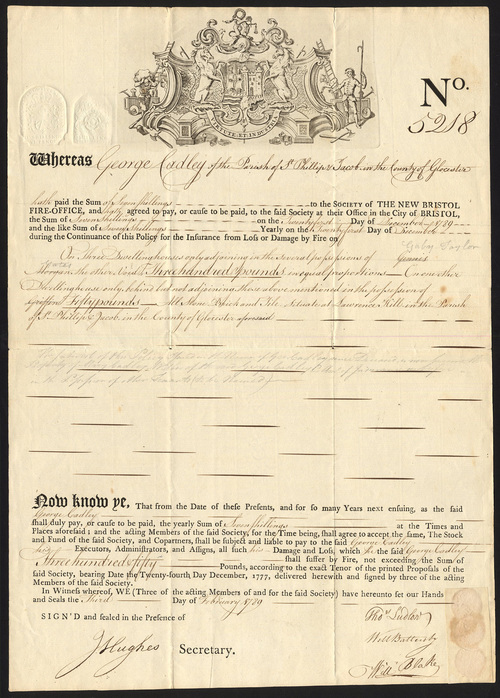 No.
5218
Whereas George Cadley of the Parish of St Phillip & Jacob in the County of Glocester
hath paid the Sum of Seven shillings to the Society of THE NEW BRISTOL
FIRE-OFFICE, and hath agreed to pay, or cause to be paid, to the said Society at their Office in the City of BRISTOL,
the Sum of Seven shillings on the Twenty first Day of December 1789
and the like Sum of Seven Shillings Yearly on the Twenty first Day of December
during the Continuance of this Policy for the Insurance from Loss or Damage by Fire on
On Three Dwelling houses only adjoining in the several possessions of
Three hundred pounds in equal proportions On one other
Dwelling house only, behind but not adjoining those above mentioned in the possession of
Fifty pounds All Stone, Black and Tile Situate at Lawrence Hill in the Parish
of St Phillip & Jacob, in the County of Glocester aforesaid
Now know ye, That from the Date of these Presents, and for so many Years next ensuing, as the said
George Cadley
shall duly pay, or cause to be paid, the yearly Sum of Seven shillings at the Times and
Places aforesaid; and the acting Members of the said Society, for the Time being, shall agree to accept the same, The Stock
and Fund of the said Society, and Coparmers, shall be subject and liable to pay to the said George Cadley
his Executors, Administrators, and Assigns, all such his Damage and Loss, which he the said George Cadley
shall suffer by Fire, not exceeding the Sum of
Three hundred & fifty Pounds, according to the exact Tenor of the printed Proposals of the
said Society, bearing Date the Twenty-fourth Day December, 1777, delivered herewith and signed by three of the acting
Members of the said Society.
In Witness whereof, WE (Three of the acting Members of and for the said Society) have hereunto set our Hands
and Seals the Third Day of February 1789
SIGN'D and sealed in the Presence of
J Hughes Secretary.
Thos Ludlow
Will Battersby
Will Blake